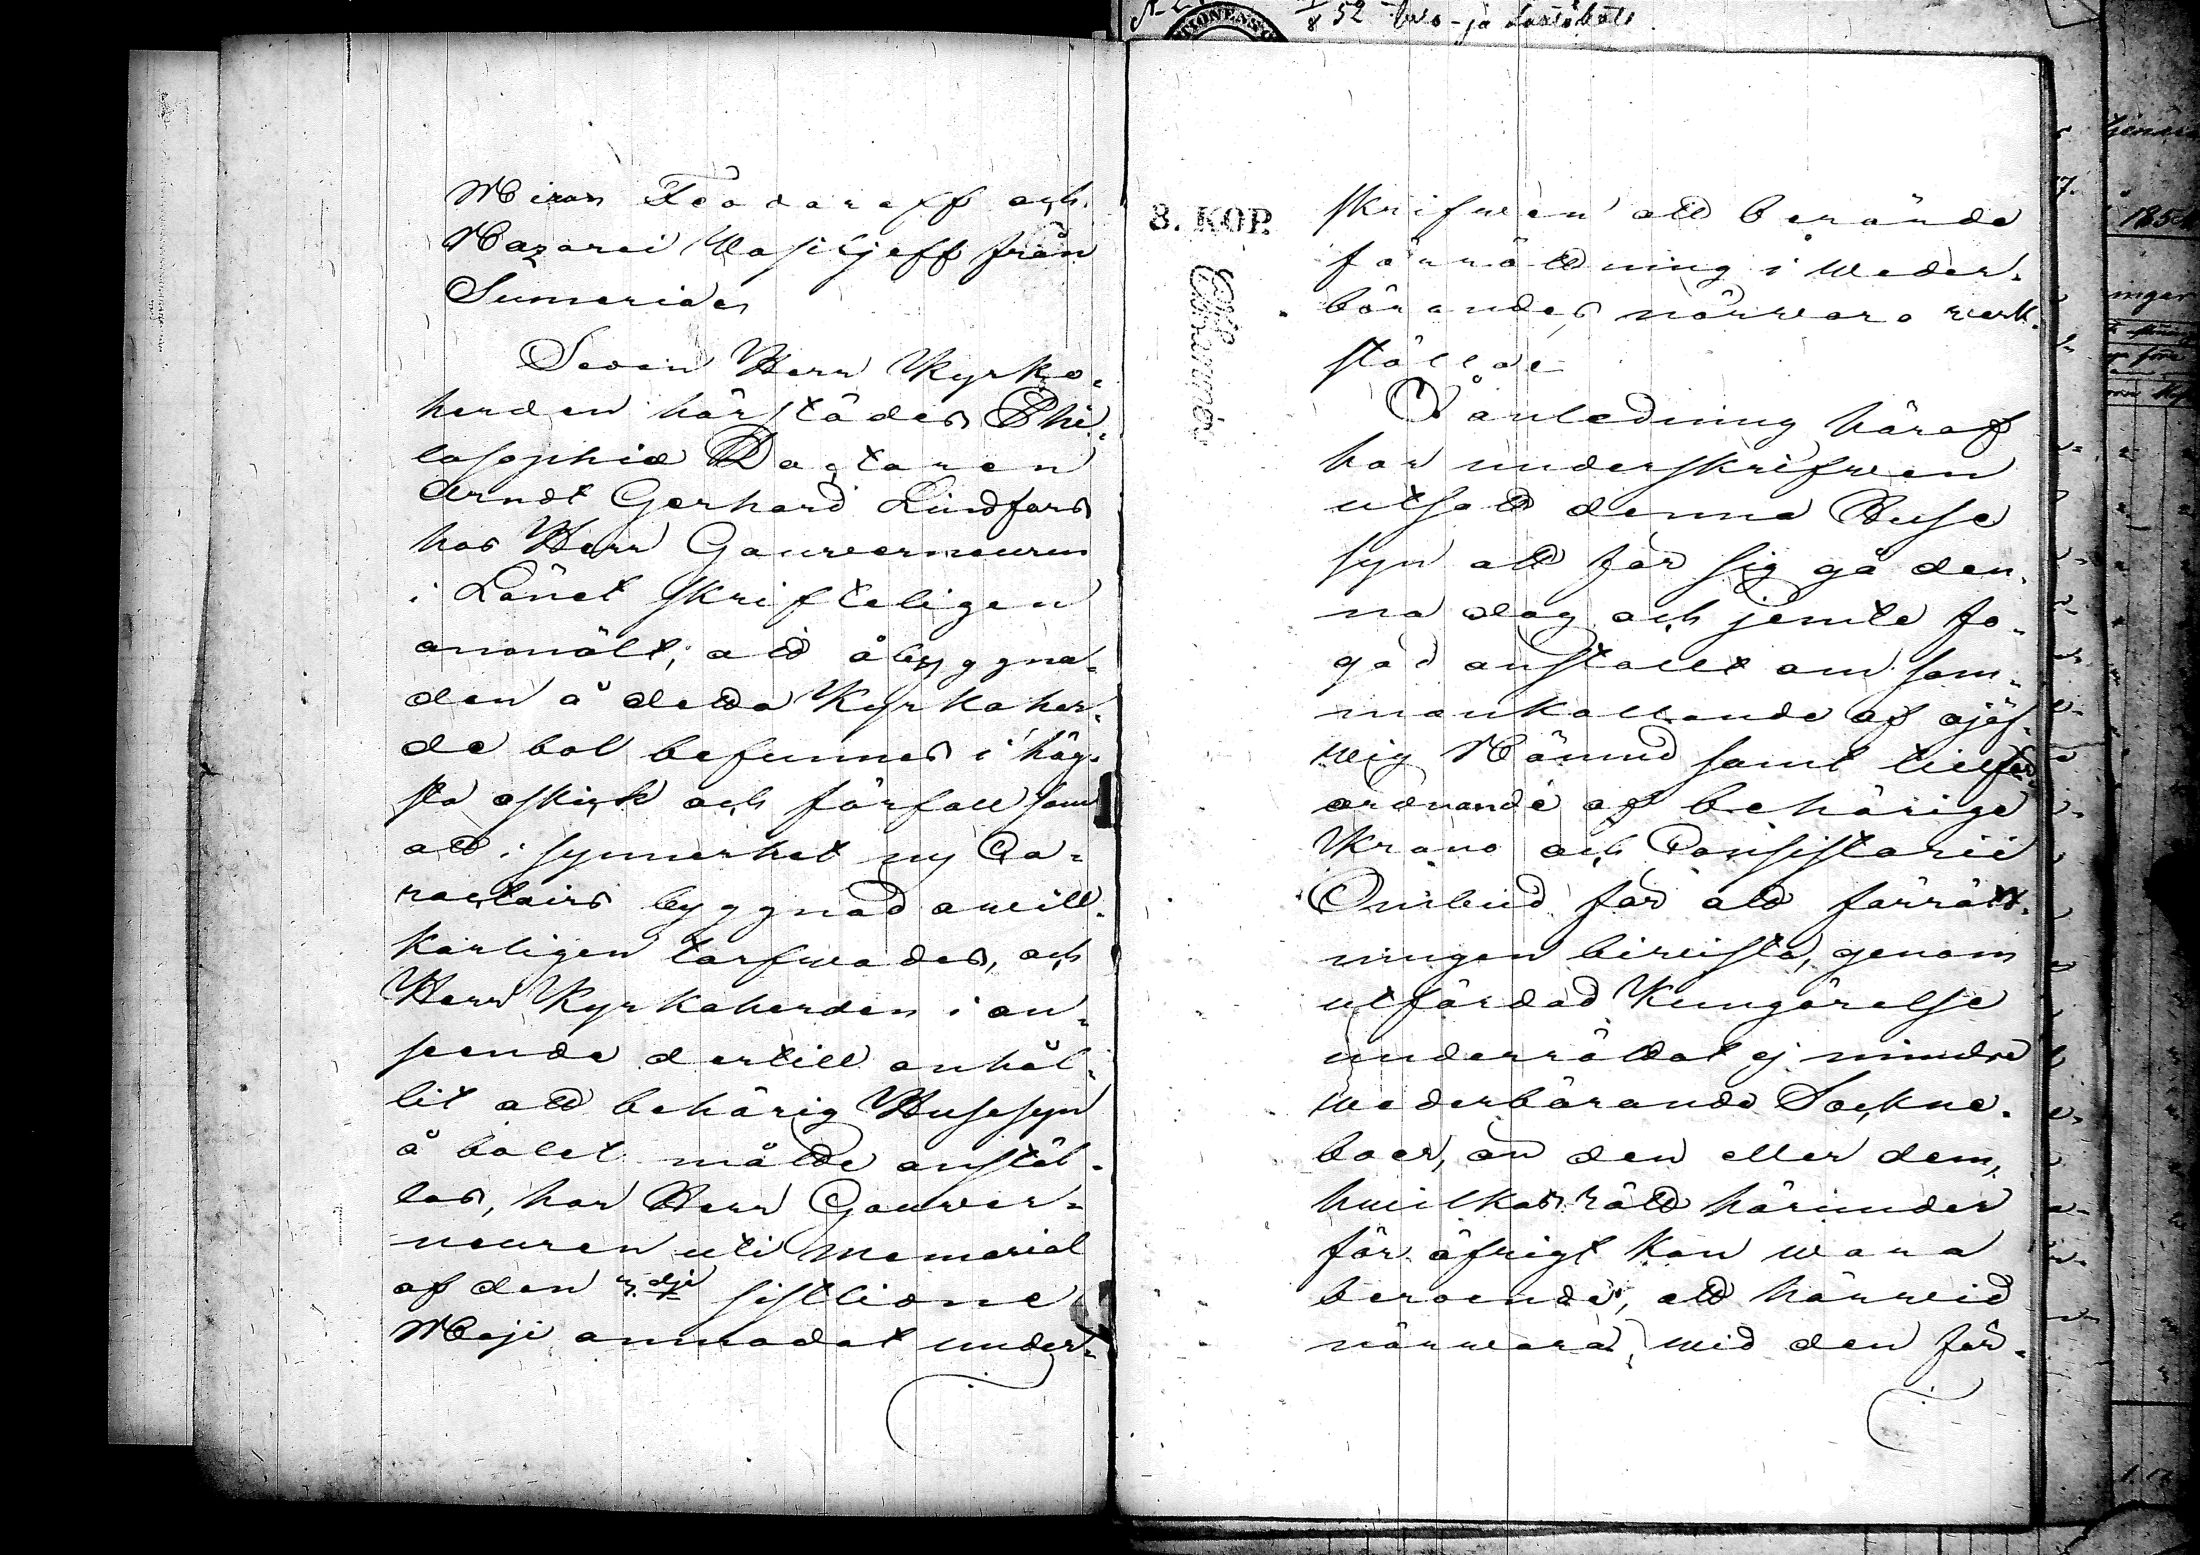 Miron Feodoroff och
Nazarei Wasiljeff från
Sumeria
Sedan Herr Kyrko-
herden härstädes Phi-
losophiæ Doctoren
Arndt Gerhard Lindfors
hos Herr Gouverneuren
i Länet skrifteligen
anmält, att åbyggna-
den å detta Kyrkoher-
de bol befunnes i hög-
sta oskick och förfall samt
att i synnerhet ny Ca-
ractairs byggnad owill-
korligen torfwades, och
Herr Kyrkoherden i an-
seende dertill anhål-
lit att behörig Husesyn
å bolet måtte anstäl-
las, har Herr Gouver-
neuren uti Memorial
af den 3dje sistlidne
Maji anmodat under-
8. KOP.
skrifwen att berörde
förrättning i weder-
börandes närwaro werk-
ställa
I anledning häraf
har underskrifwen
utsatt denna Huse
syn att för sig gå den-
na dag och jemte fo-
gad anstallt om sam-
mankallande af ojäf-
wig Nämnd samt till för
ordnande af behörige
Krono och Consistorii
Ombud för att förrätt-
ningen biwista, genom
utfärdad Kungörelse
underrättat ej mindre
wederbörande Sockne-
boer, än den eller dem,
hwilkas rätt härunder
för öfrigt kan wara
beroende, att härwid
närwara, wid den för-